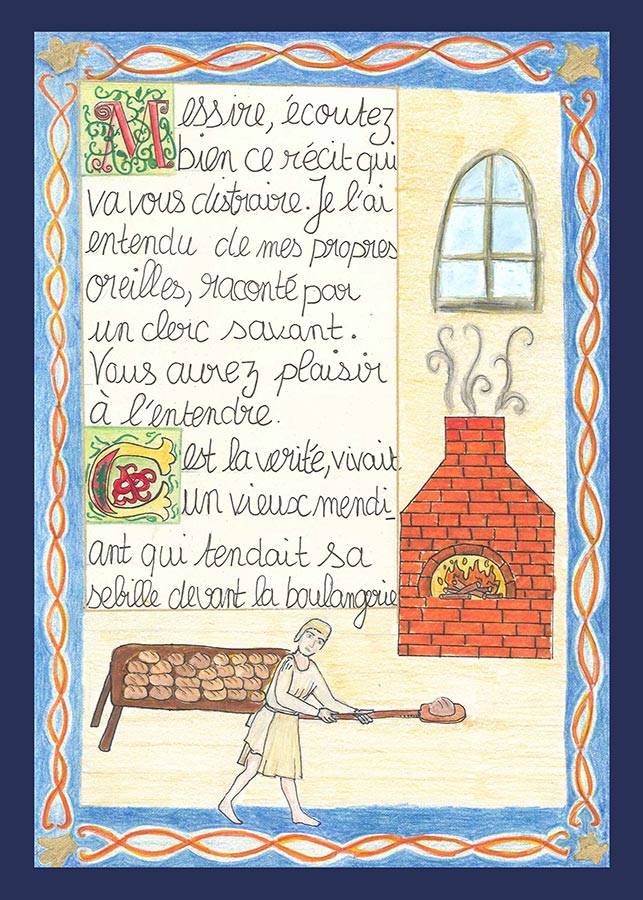 Messire, écoutez
bien ce récit qui
va vous distraire. Je l'ai
entendu de mes propres
oreilles, raconté par
un clerc savant.
Vous aurez plaisir
à l'entendre.
C'est la verité, vivait
un vieux mendi-
ant qui tendait sa
sebille devant la boulangerie